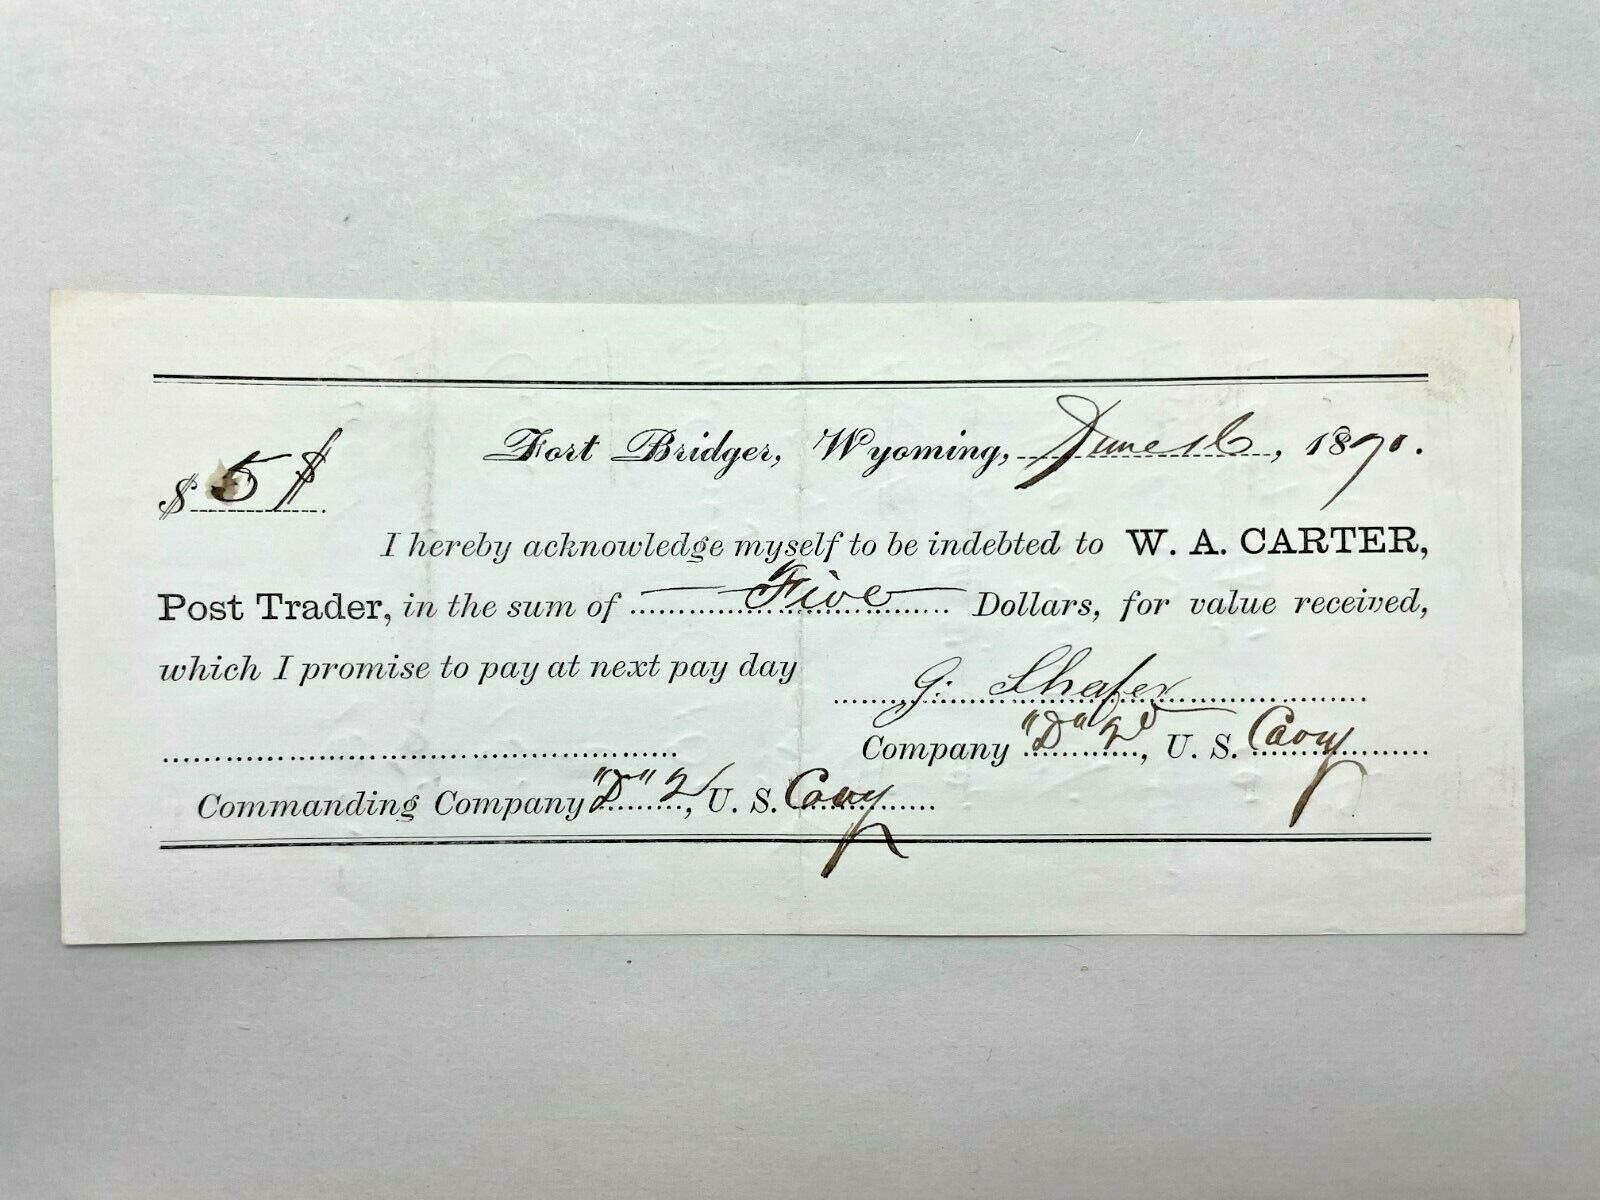 Fort Bridger, Wyoming, June 16, 1870.
$ 5 $
I hereby acknowledge myself to be indebted to W. A. CARTER,
Post Trader, in the sum of Five Dollars, for value received,
which I promise to pay at next pay day
G. Shafer
Company "D" 2d, U. S. Cavy
Commanding Company "D" 2, U. S. Cavy